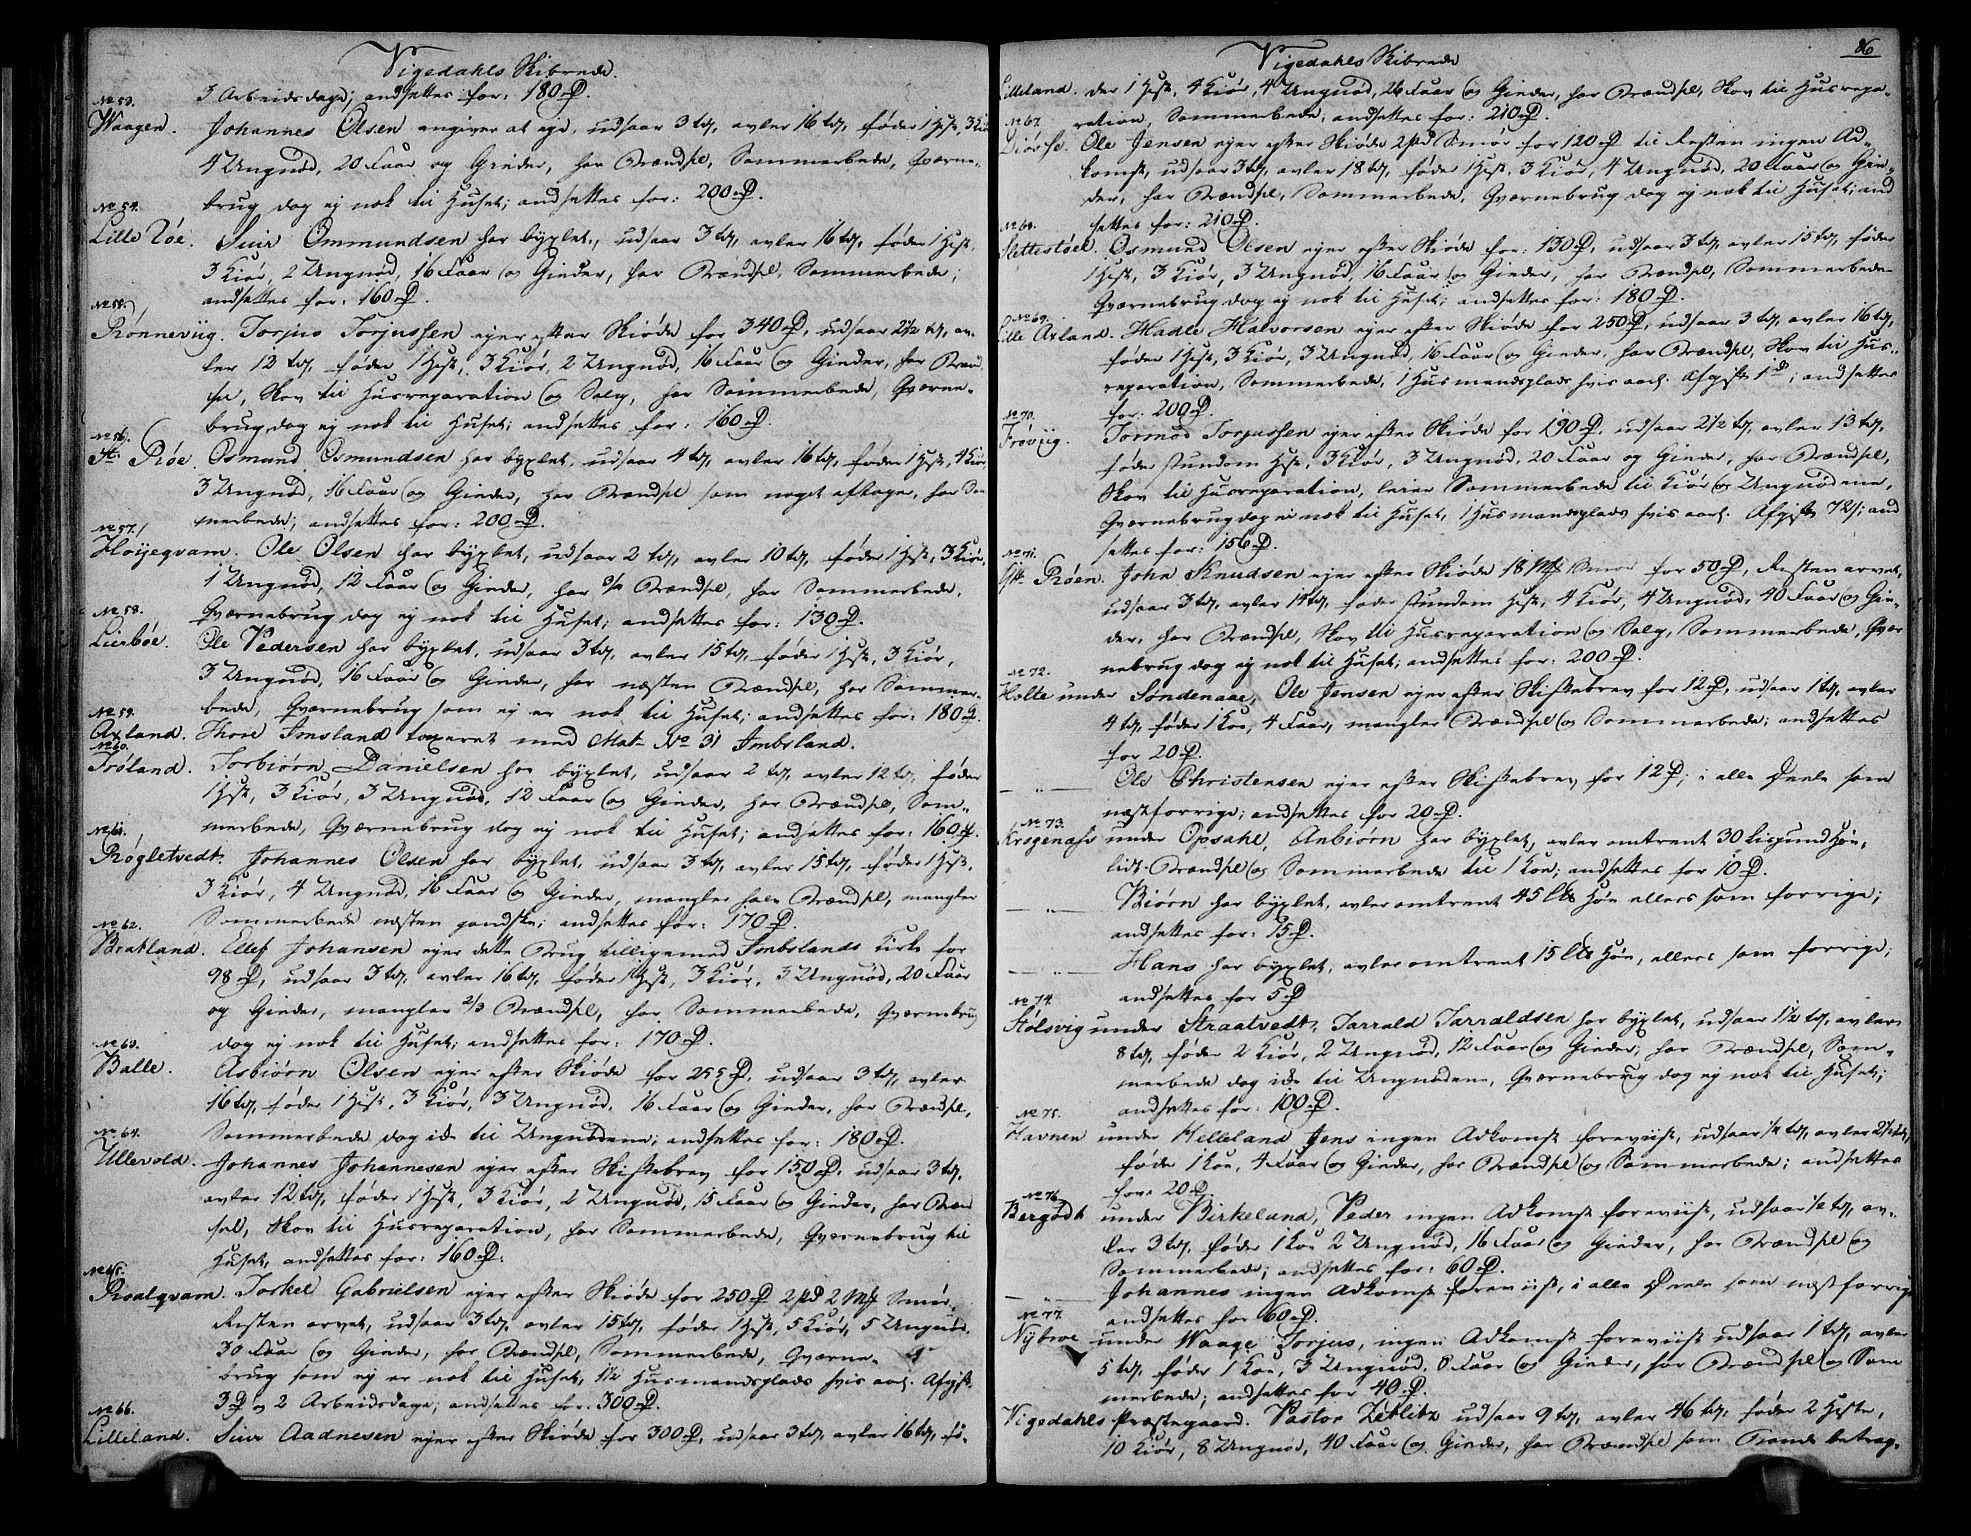 Vigedahls Skibrede.
3 Arbeidsdage; andsættes for: 180 D.
No 53.
Waagen. Johannes Olsen angiver at eje, udsaar 3 td, avler 16 td, føder 1 Hest, 3 Kiør
4 Ungnød, 20 Faar og Gieder, har Brændsel, Sommerbede, Qværne-
brug dog ej nok til Huset; andsættes for: 200 D.
No 54.
Lille Røe. Siur Ommundsen har byxlet, udsaar 3 td, avler 16 td, føder 1 Hest,
3 Kiør, 2 Ungnød, 16 Faar og Gieder, har Brændsel, Sommerbede;
andsættes for: 160 D.
No 55.
Rønneviig. Torjus Torjussen ejer efter Skiøde for 340 D, udsaar 2 1/2 td, av-
ler 12 td, føder 1 Hest, 3 Kiør, 2 Ungnød, 16 Faar og Gieder, har Brænd
sel, Skov til Husreparation og Salg, har Sommerbede, Qværne-
brug dog ej nok til Huset; andsættes for: 160 D.
No 56.
St. Røe. Osmund Osmundsen har byxlet, udsaar 4 td, avler 16 td, føder 1 Hest, 4 Kiør,
3 Ungnød, 16 Faar og Gieder, har Brændsel som noget aftager, har Som
merbede; andsættes for: 200 D.
No 57.
Høyeqvam. Ole Olsen har byxlet, udsaar 2 td, avler 10 td, føder 1 Hest, 3 Kiør,
1 Ungnød, 12 Faar og Gieder, har 3/4 Brændsel, har Sommerbede,
Qværnebrug dog ej nok til Huset; andsættes for: 130 D.
No 58.
Lierbøe. Ole Pedersen har byxlet, udsaar 3 td, avler 15 td, føder 1 Hest, 3 Kiør,
3 Ungnød, 16 Faar og Gieder, har næsten Brændsel, har Sommer-
bede, Qværnebrug som ej er nok til Huset; andsættes for: 180 D.
No 59.
Axland. Thore Imsland taxeret med Mat. No 31 Imbsland.
No 60.
Frøland. Torbiørn Danielsen har byxlet, udsaar 2 td, avler 12 td, føder
1 Hest, 3 Kiør, 3 Ungnød, 12 Faar og Gieder, har Brændsel, Som-
merbede, Qværnebrug dog ej nok til Huset; andsættes for: 160 D.
No 61.
Røgletvedt. Johannes Olsen har byxlet, udsaar 3 td, avler 15 td, føder 1 Hest,
3 Kiør, 4 Ungnød, 16 Faar og Gieder, mangler halv Brændsel, mangler
Sommerbede næsten gandske; andsættes for: 170 D.
No 62.
Bratland. Ellef Johansen ejer dette Brug tilligemed Imbslands Kirke for
98 D, udsaar 3 td, avler 16 td, føder 1 Hest, 3 Kiør, 3 Ungnød, 20 Faar
og Gieder, mangler 2/3 Brændsel, har Sommerbede, Qværnebrug
dog ej nok til Huset; andsættes for: 170 D.
No 63.
Balle. Asbiørn Olsen ejer efter Skiøde for 255 D, udsaar 3 td, avler
16 td, føder 1 Hest, 3 Kiør, 3 Ungnød, 16 Faar og Gieder, har Brændsel,
Sommerbede dog ide til Ungnødene; andsættes for: 180 D.
No 64.
Ullevold. Johannes Johannesen ejer efter Skiftebrev for 150 D, udsaar 3 td,
avler 12 td, føder 1 Hest, 3 Kiør, 2 Ungnød, 15 Faar og Gieder, har Brænd
sel, Skov til Husreparation, har Sommerbede, Qværnebrug til
Huset, andsættes for: 160 D.
No 65.
Roalqvam. Torkel Gabrielsen ejer efter Skiøde for 250 D 2 pd 2 Mk Smør.
Resten arvet, udsaar 3 td, avler 15 td, føder 1 Hest, 5 Kiør, 5 Ungnød,
30 Faar og Gieder, har Brændsel, Sommerbede, Qværne-
brug som ej er nok til Huset, 1 1/2 Husmandsplads hvis aarl. Afgift
3 D og 2 Arbeidsdage; andsættes for: 300 D.
No 66.
Lilleland. Siur Aadnesen ejer efter Skiøde for 300 D, udsaar 3 td, avler 16 td, fø-
86
Vigedahls Skibrede
Lilleland. der 1 Hest, 4 Kiør, 4 Ungnød, 26 Faar og Gieder, har Brændsel, Skov til Husrepa-
ration, Sommerbede, andsættes for: 210 D.
No 67.
Ole Jensen ejer efter Skiøde 2 pd Smør for 120 D til Resten ingen Ad-
komst, udsaar 3 td, avler 18 td, føder 1 Hest, 3 Kiør, 4 Ungnød, 20 Faar og Gie-
der, har Brændsel, Sommerbede, Qværnebrug dog ej nok til Huset; and
sættes for: 210 D.
No 68.
Slettestøel. Osmund Olsen ejer efter Skiøde for: 130 D, udsaar 3 td, avler 15 td, føder
1 Hest, 3 Kiør, 3 Ungnød, 16 Faar og Gieder, har Brændsel, Sommerbede
Qværnebrug dog ej nok til Huset; andsættes for: 180 D.
No 69.
Lille Axland. Hadle Halvorsen ejer efter Skiøde for 250 D, udsaar 3 td, avler 16 td,
føder 1 Hest, 3 Kiør, 3 Ungnød, 16 Faar og Gieder, har Brændsel, Skov til Hus-
reparation, Sommerbede, 1 Husmandsplads hvis aarl. Afgift 1 D; andsættes
for: 200 D.
No 70.
Frøvjig. Tormod Torjussen ejer efter Skiøde for 190 D, udsaar 2 1/2 td, avler 13 td,
føder stundom Hest, 3 Kiør, 3 Ungnød, 20 Faar og Gieder, har Brændsel,
Skov til Husreparation, leier Sommerbede til Kiør og Ungnødene,
Qværnebrug dog ei nok til Huset, 1 Husmandsplads hvis aarl. Afgift 72 s; and
sættes for: 156 D.
No 71.
Røen. John Knudsen ejer efter Skiøde 18 Mk Smør for 50 D, Resten arvet,
udsaar 3 td, avler 14 td, føder stundom Hest, 4 Kiør, 4 Ungnød, 40 Faar og Gie-
der, har Brændsel, Skov til Husreparation og Salg, Sommerbede, Qvær
nebrug dog ej nok til Huset; andsættes for: 200 D.
No 72.
Holte under Søndenaae, Ole Jensen ejer efter Skiftebrev for 12 D, udsaar 1 td, avler
4 td, føder 1 Koe, 4 Faar, mangler Brændsel og Sommerbede; andsættes
for 20 D.
— „ — Ole Christensen ejer efter Skiftebrev for 12 D; i alle Deele som
næstforrige; andsættes for 20 D.
No 73.
Krogenæs under Opsahl, Anbiørn har byxlet, avler omtrent 30 Lispund Høe,
lidt Brændsel og Sommerbede til 1 Koe; andsættes for 10 D.
— „ — Biørn har byxlet, avler omtrent 45 Lt Høe ellers som forrige;
andsættes for: 15 D.
— „ — Hans har byxlet, avler omtrent 15 Lt Høe, ellers som forrige;
andsættes for 5 D
No 74.
Stølsvig under Straatvedt, Tarrald Tarraldsen har byxlet, udsaar 1 1/2 td, avler
8 td, føder 2 Kiør, 2 Ungnød, 12 Faar og Gieder, har Brændsel, Som-
merbede dog ide til Ungnødene, Qværnebrug dog ej nok til Huset;
andsættes for: 100 D.
No 75.
Havnen under Helleland Jens ingen Adkomst foreviist, udsaar 1/2 td, avler 2 1/2 td,
føder 1 Koe, 4 Faar og Gieder, har Brændsel og Sommerbede; andsættes
for: 20 D.
No 76.
Bergødt under Birkeland, Peder ingen Adkomst foreviist, udsaar 1/2 td, av-
ler 3 td, føder 1 Koe 2 Ungnød, 16 Faar og Gieder, har Brændsel og
Sommerbede; andsættes for: 60 D.
— „ — Johannes ingen Adkomst foreviist, i alle Deele som næstforrige
andsættes for 60 D.
No 77.
Nybroe under Waage Torjus, ingen Adkomst foreviist udsaar 1 td, avler
5 td, føder 1 Koe, 3 Ungnød, 8 Faar og Gieder, har Brændsel og Som
merbede; andsættes for 40 D.
Vigedahls Præstegaard. Pastor Zetlitz udsaar 9 td, avler 46 td, føder 2 Heste,
10 Kiør, 8 Ungnød, 40 Faar og Gieder, har Brændsel som betrag-